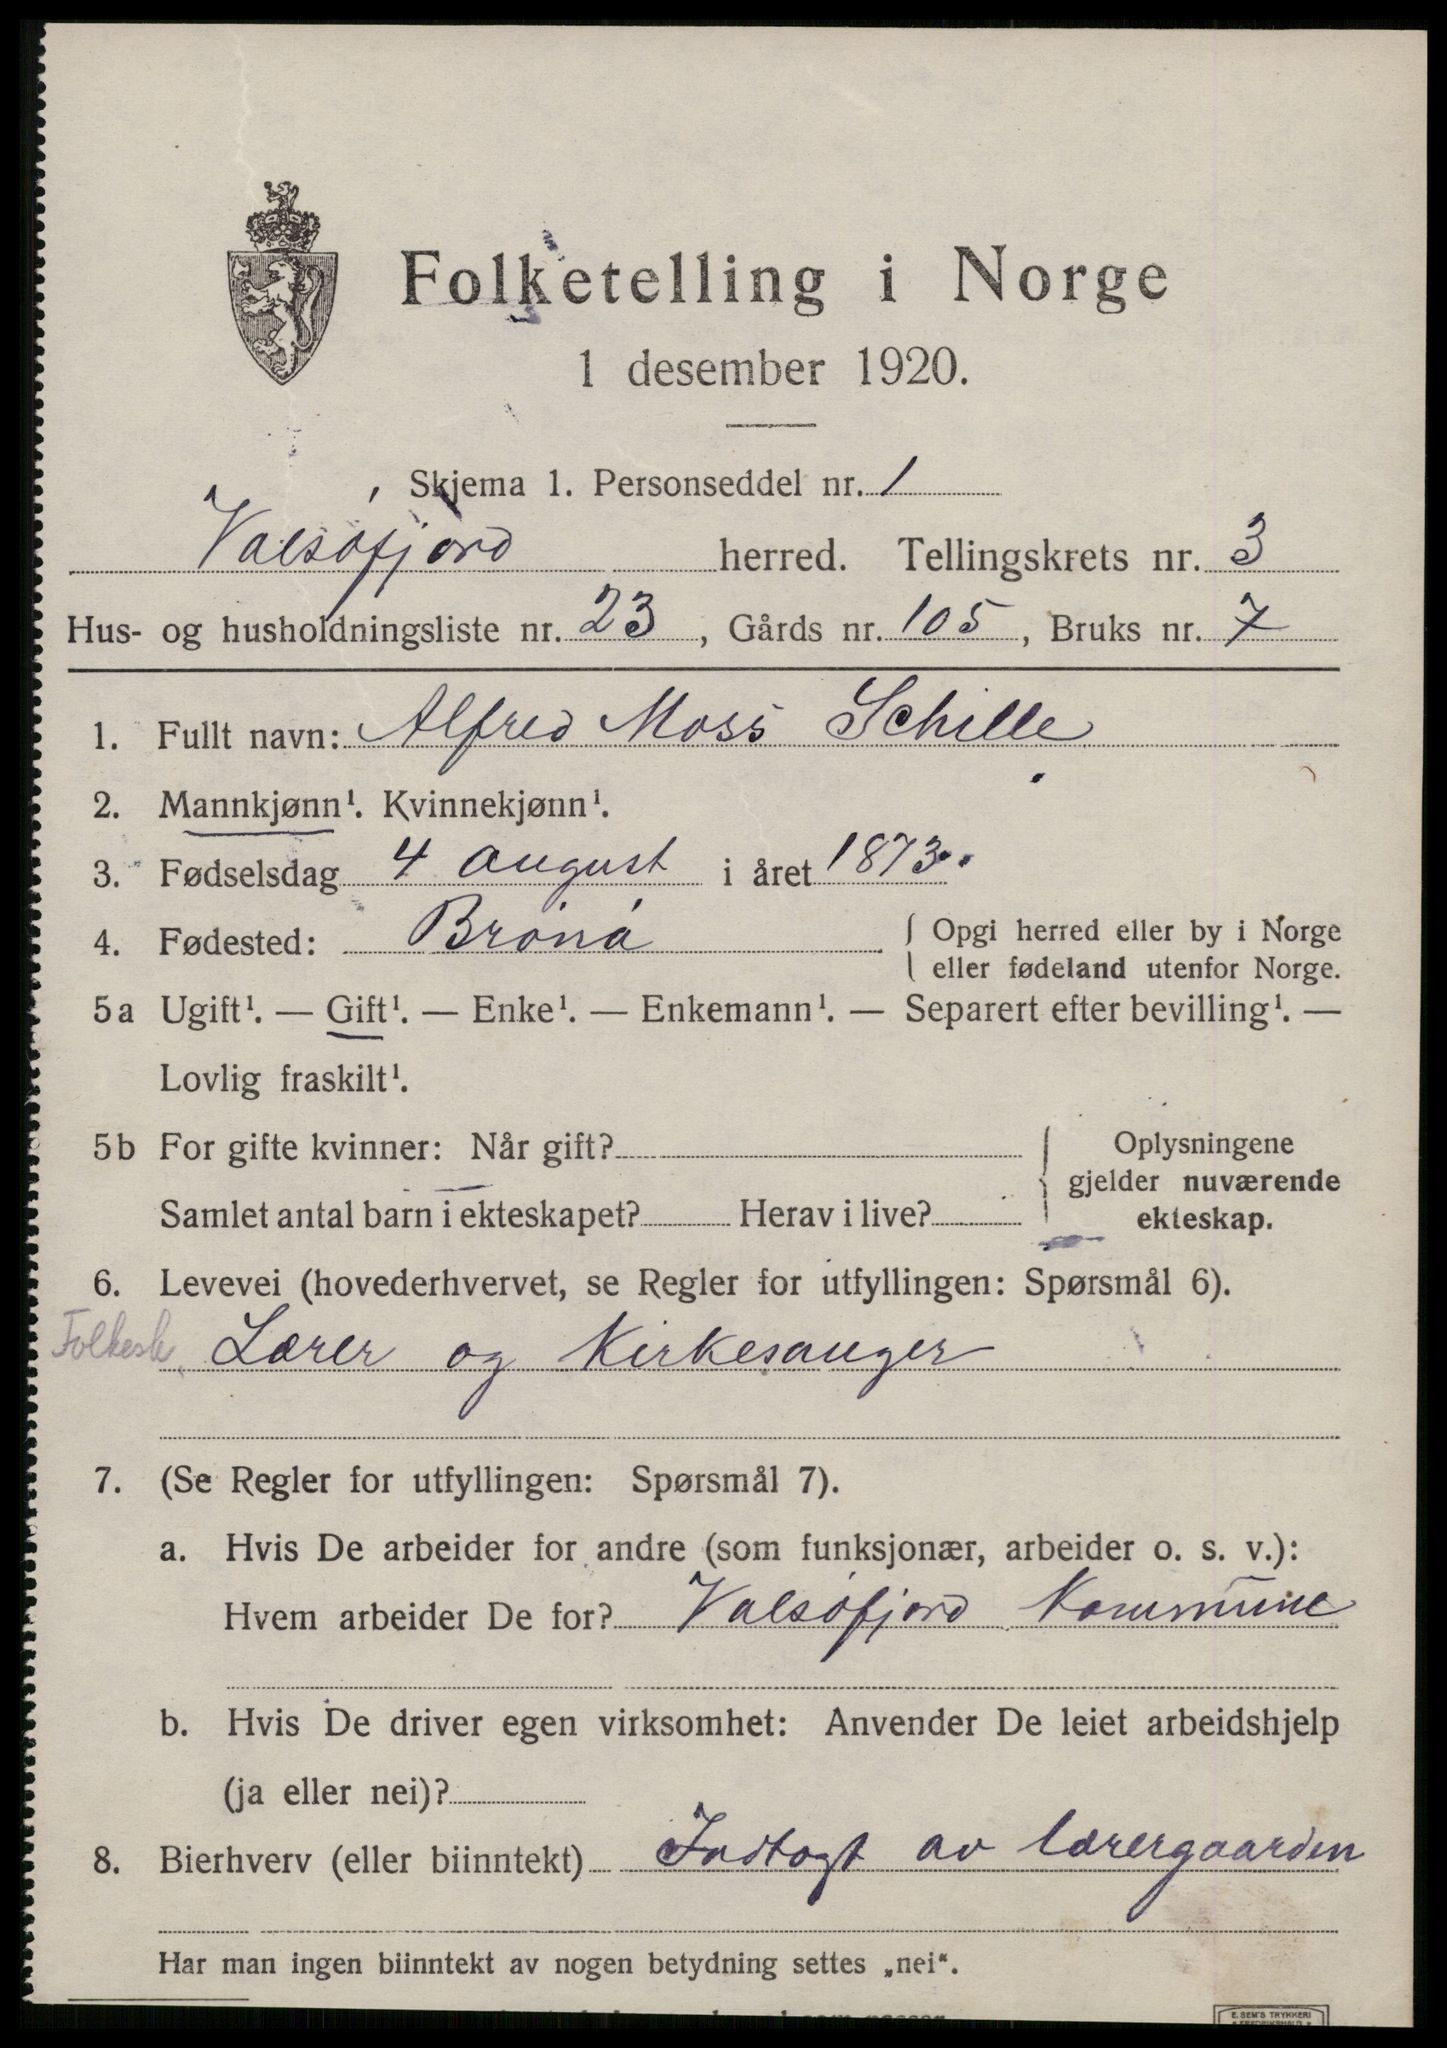 Folketelling i Norge
1 desember 1920.
Skjema 1. Personseddel nr. 1
Valsöfjord herred. Tellingskrets nr. 3
Hus- og husholdningsliste nr. 23, Gårds nr. 105, Bruks nr. 7
1. Fullt navn: Alfred Moss Schille
2. Mannkjønn¹. Kvinnekjønn¹.
3. Fødselsdag 4 august i året 1873.
4. Fødested: Brönö { Opgi herred eller by i Norge
eller fødeland utenfor Norge.
5a Ugift¹. — Gift¹. — Enke¹. — Enkemann¹. — Separert efter bevilling¹. —
Lovlig fraskilt¹.
5b For gifte kvinner: Når gift? Oplysningene
gjelder nuværende
Samlet antal barn i ekteskapet? Herav i live? ekteskap.
6. Levevei (hovederhvervet, se Regler for utfyllingen: Spørsmål 6).
Folkesk. Lærer og Kirkesanger
7. (Se Regler for utfyllingen: Spørsmål 7).
a. Hvis De arbeider for andre (som funksjonær, arbeider o. s. v.):
Hvem arbeider De for? Valsöfjord Kommune
b. Hvis De driver egen virksomhet: Anvender De leiet arbeidshjelp
(ja eller nei)?
8. Bierhverv (eller biinntekt) Indtægt av lærergaarden
Har man ingen biinntekt av nogen betydning settes „nei“.
E. SEM'S TRYKKERI
FREDRIKSHALD